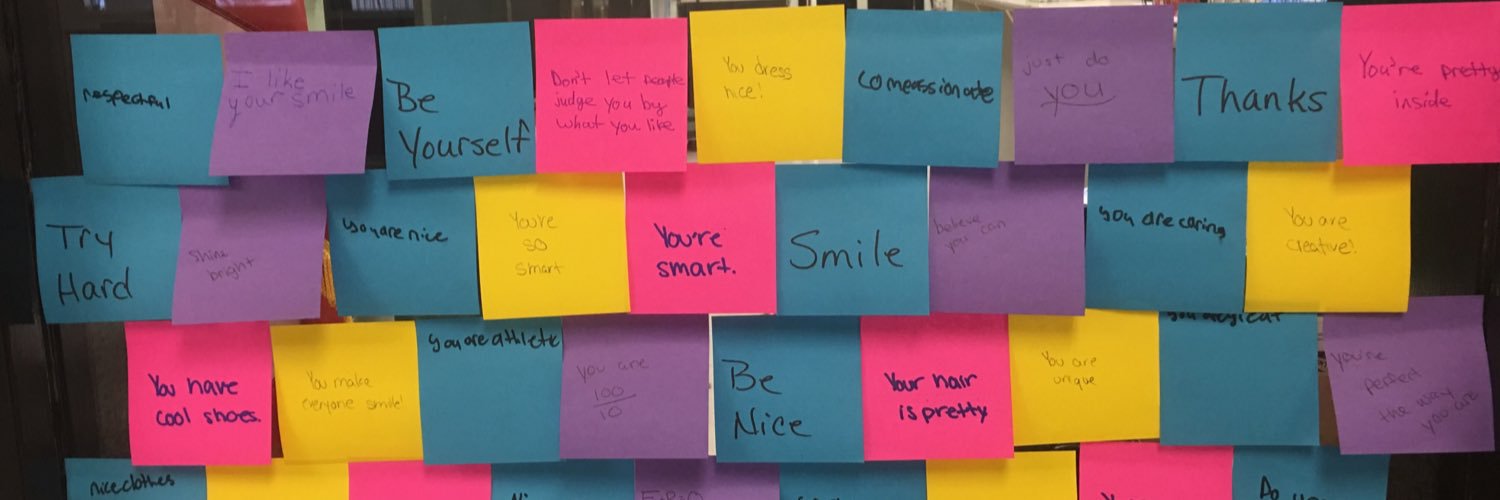 respectful
I like
your smile
Be
Yourself
Don't let people
judge you by
what you like
You dress
nice!
compassionate
just do
you
Thanks
You're pretty
inside
Try
Hard
Shine
bright
you are nice
You're
so
smart
You're
smart.
Smile
believe
you can
you are caring
You are
creative!
You have
cool shoes.
You make
everyone smile!
you are athlete
you are
100
10
Be
Nice
Your hair
is pretty
You are
unique
you are great
you're
perfect
the way
you are
nice clothes